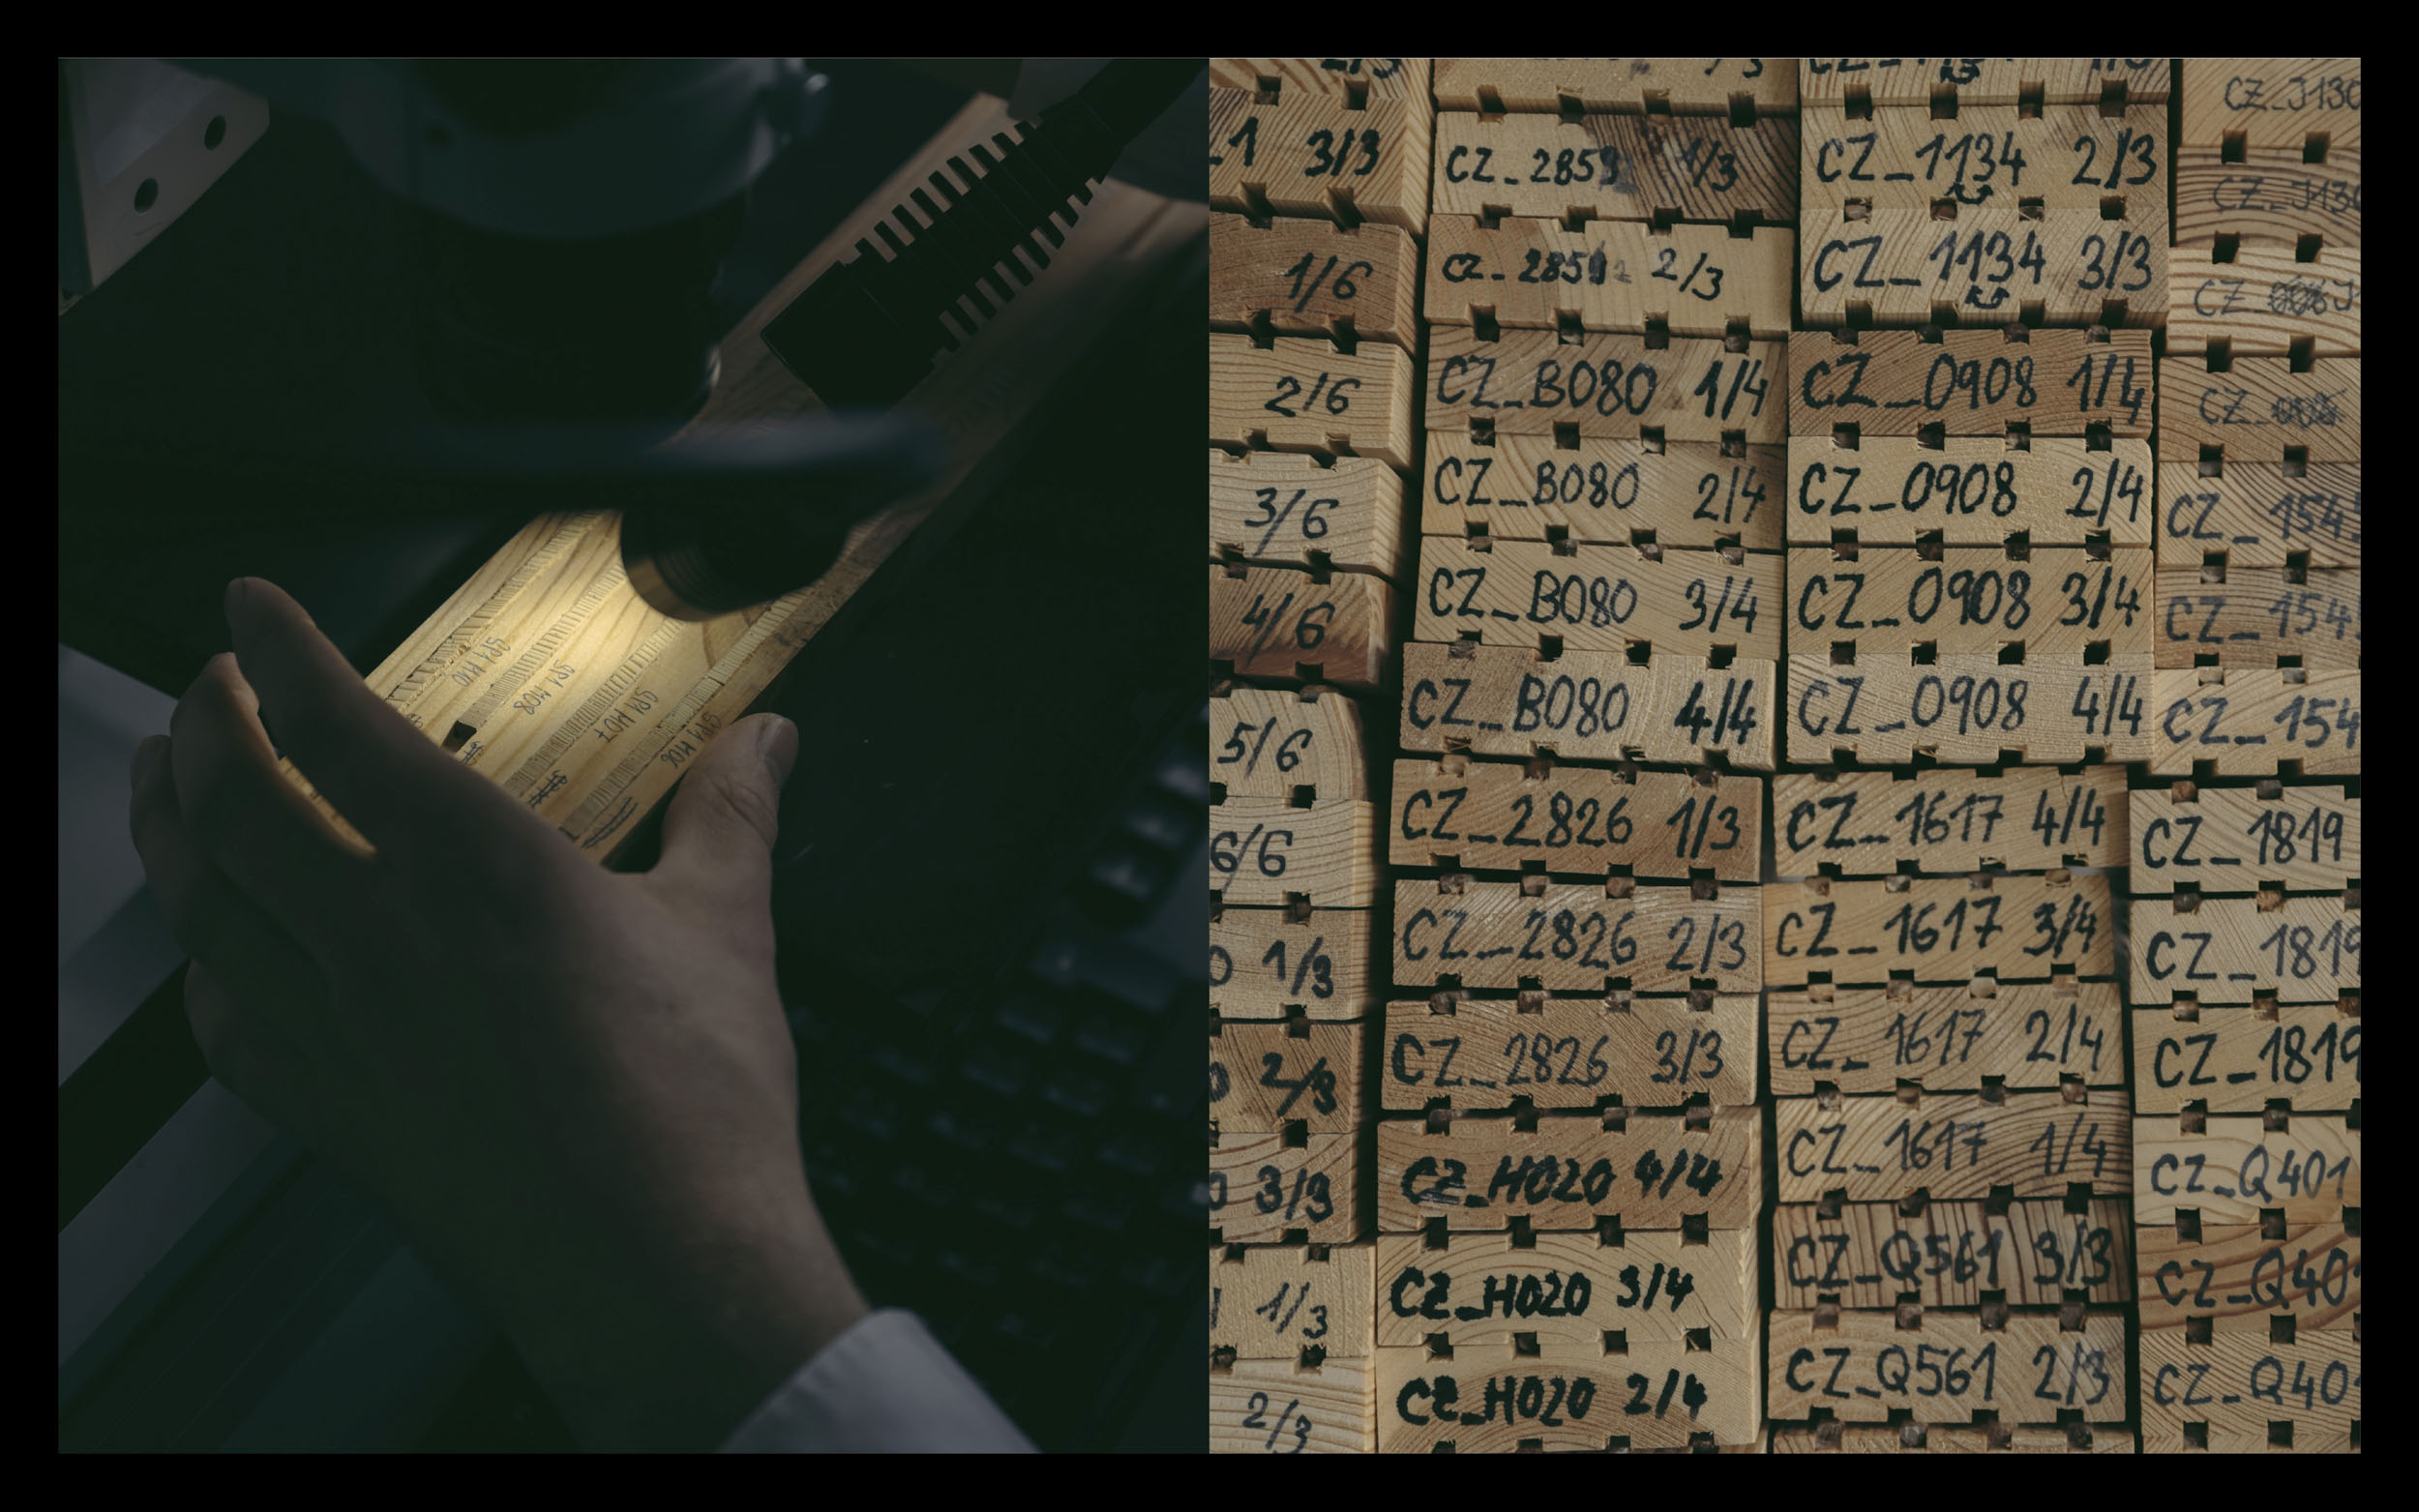 SPI M10
SPI M08
SPI M07
SPI M06
3/3
1/6
2/6
3/6
4/6
5/6
6/6
1/3
2/3
3/3
1/3
2/3
1/3
CZ_ 2/3
CZ_B080 1/4
CZ_B080 2/4
CZ_B080 3/4
CZ_B080 4/4
CZ_2826 1/3
CZ_2826 2/3
CZ_2826 3/3
CZ_H020 4/4
CZ_H020 3/4
CZ_H020 2/4
CZ_1134 2/3
CZ_1134 3/3
CZ_0908 1/4
CZ_0908 2/4
CZ_0908 3/4
CZ_0908 4/4
CZ_1617 4/4
CZ_1617 3/4
CZ_1617 2/4
CZ_1617 1/4
CZ_Q561 3/3
CZ_Q561 2/3
CZ_J130
CZ_J130
CZ_
CZ_
CZ_154
CZ_154
CZ_154
CZ_1819
CZ_1819
CZ_1819
CZ_Q401
CZ_Q40
CZ_Q40